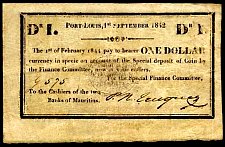 Dr 1. PORT-LOUIS, 1st SEPTEMBER 1842 Dr 1.
The 1st of February 1844 pay to bearer ONE DOLLAR
currency in specie on account of the Special deposit of Coin by
the Finance Committee, now in your coffers.
575 For the Special Finance Committee,
To the Cashiers of the two
Banks of Mauritius.